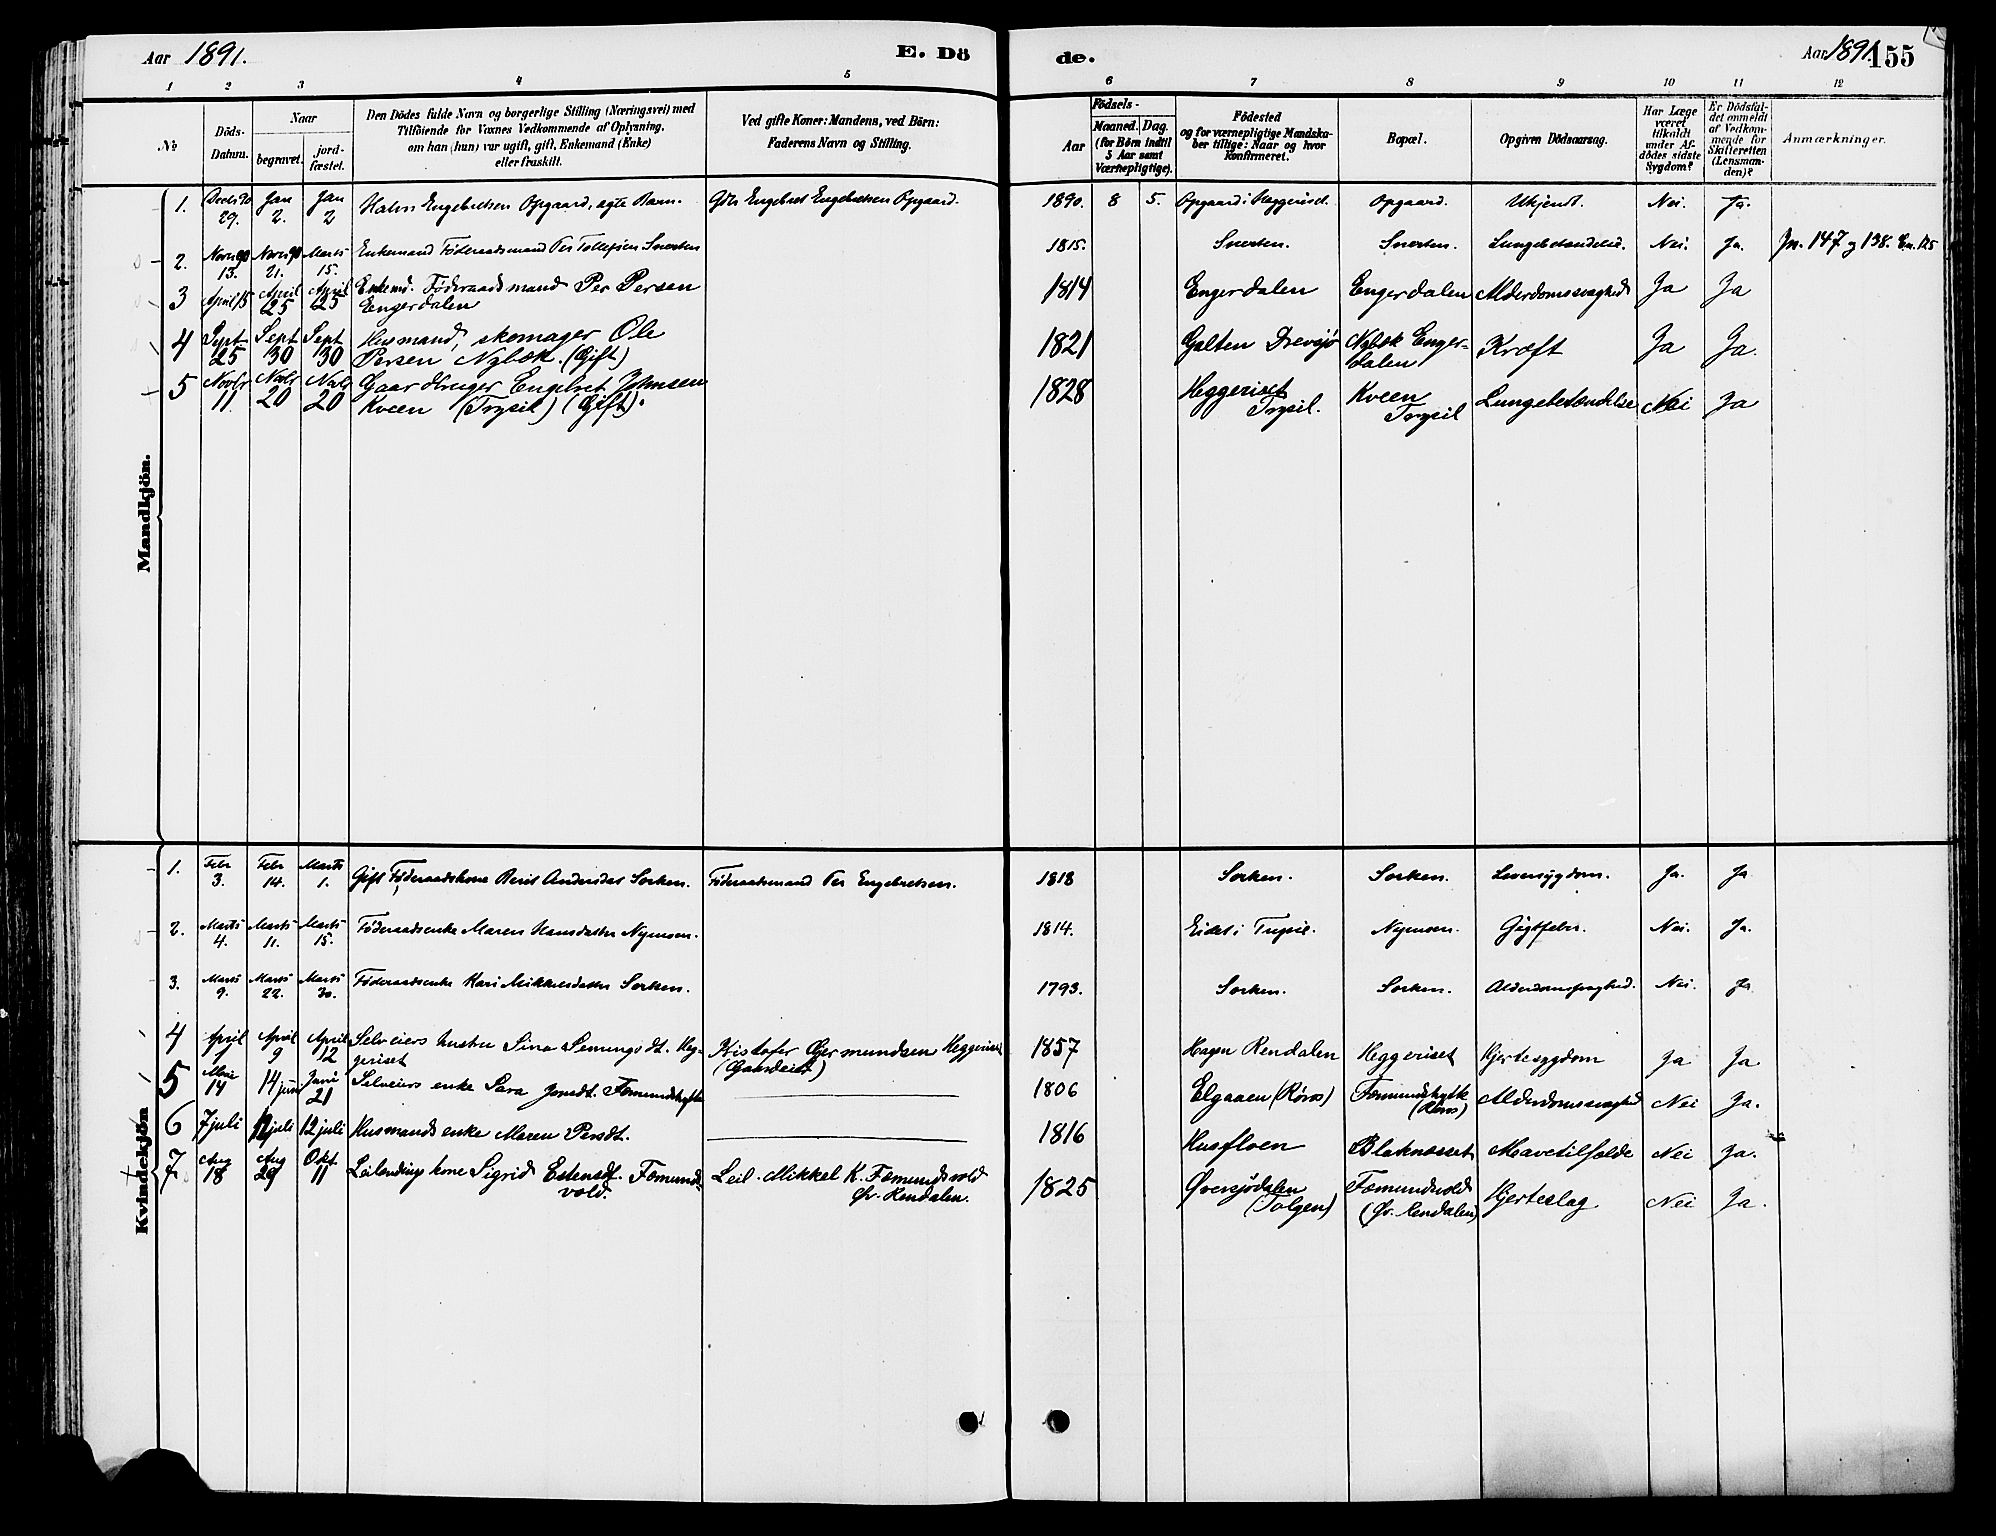 Aar 1891.
E. Dö
de.
Aar 1891
155
1 2 3 4 5 6 7 8 9 10 11 12
No
Döds-
Datum.
Naar
begravet.
jord-
fæstet.
Den Dödes fulde Navn og borgerlige Stilling (Næringsvei) med
Tilföiende for Voxnes Vedkommende af Oplysning,
om han (hun) var ugift, gift, Enkemand (Enke)
eller fraskilt.
Ved gifte Koner: Mandens, ved Börn:
Faderens Navn og Stilling.
Födsels-
Aar
Maaned. Dag.
(for Börn indtil
5 Aar samt
Værnepligtige).
Födested
og for værnepligtige Mandska-
ber tillige: Naar og hvor
konfirmeret.
Bopæl.
Opgiven Dödsaarsag.
Har Læge
været
tilkaldt
under Af-
dödes sidste
Sygdom?
Er Dödsfal-
det anmeldt
af Vedkom-
mende for
Skifteretten
(Lensman-
den)?
Anmærkninger.
Mandkjön.
1. 29. Jan 2. Jan 2 Engebretsen Opgaard, ægte Barn. Engebret Engebretsen Opgaard. 1890. 8 5. Opgaard i Heggeriset. Opgaard. Ukjendt. Nei. Ja.
2. Novbr 90 13. Novbr 90 21. Marts 15. Enkemand Føderaadsmand Per Tollefsen Snerten 1815. Snerten. Snerten. Lungebetændelse. Nei. Ja. Jn. 147 og 138.
3 April 15 April 25 April 25 Enkemd. Føderaadsmand Per Persen
Engerdalen 1814 Engerdalen Engerdalen Alderdomssvaghed Ja Ja
4 Sept 25 Sept 30 Sept 30 Husmand, skomager Ole
Persen Nybæk. (Gift) 1821 Galten Drevsjø Nybæk Enger-
dalen Kræft Ja Ja.
5 Novbr 11 Novbr 20 Novbr 20 Gaardbruger Engebret Johnsen
Kveen (Trysil) (Gift). 1828 Heggeriset
Trysil. Kveen
Trysil Lungebetændelse Nei Ja
Kvindekjön
1. Febr 3. Febr 14. Marts 1. Gift Føderaadskone Berit Andersdat Sorken. Føderaadsmand Per Engebretsen. 1818 Sorken. Sorken. Leversygdom. Ja. Ja
2. Marts 4. Marts 11. Marts 15. Føderaadsenke Maren Hansdatter Nymoen. 1814. Eidet i Trysil. Nymoen. Gigtfeber. Nei. Ja.
3. Marts 9. Marts 22. Marts 30. Føderaadsenke Kari Mikkelsdatter Sorken. 1793. Sorken. Sorken. Alderdomssvaghed. Nei. Ja
4 April 1 April 9 April 12 Selveiers hustru Sina Semingsdt. Heg-
geriset Kristofer Gjermundsen Heggeriset
(Gaardeier) 1857 Hagen Rendalen Heggeriset Hjertesygdom Ja Ja
5 Mai 14 14 juni Juni 21 Selveiers enke Sara Jonsdt. Fæmundshytte 1806 Elgaaen (Røros) Fæmundshytte
(Røros) Alderdomssvaghed Nei Ja.
6 7 juli 12 juli 12 juli Husmands enke Maren Persdt. 1816 Husfloen Blaknæsset Mavetilfælde Nei Ja.
7 Aug 18 Aug 29 Okt 11 Leilendings kone Sigrid Estensdt. Fæmunds-
vold. Leil. Mikkel K. Fæmundsvold
Øv. Rendalen. 1825 Øversjødalen
(Tolgen) Fæmundsvold
(Øv. Rendalen) Hjerteslag Nei Ja.